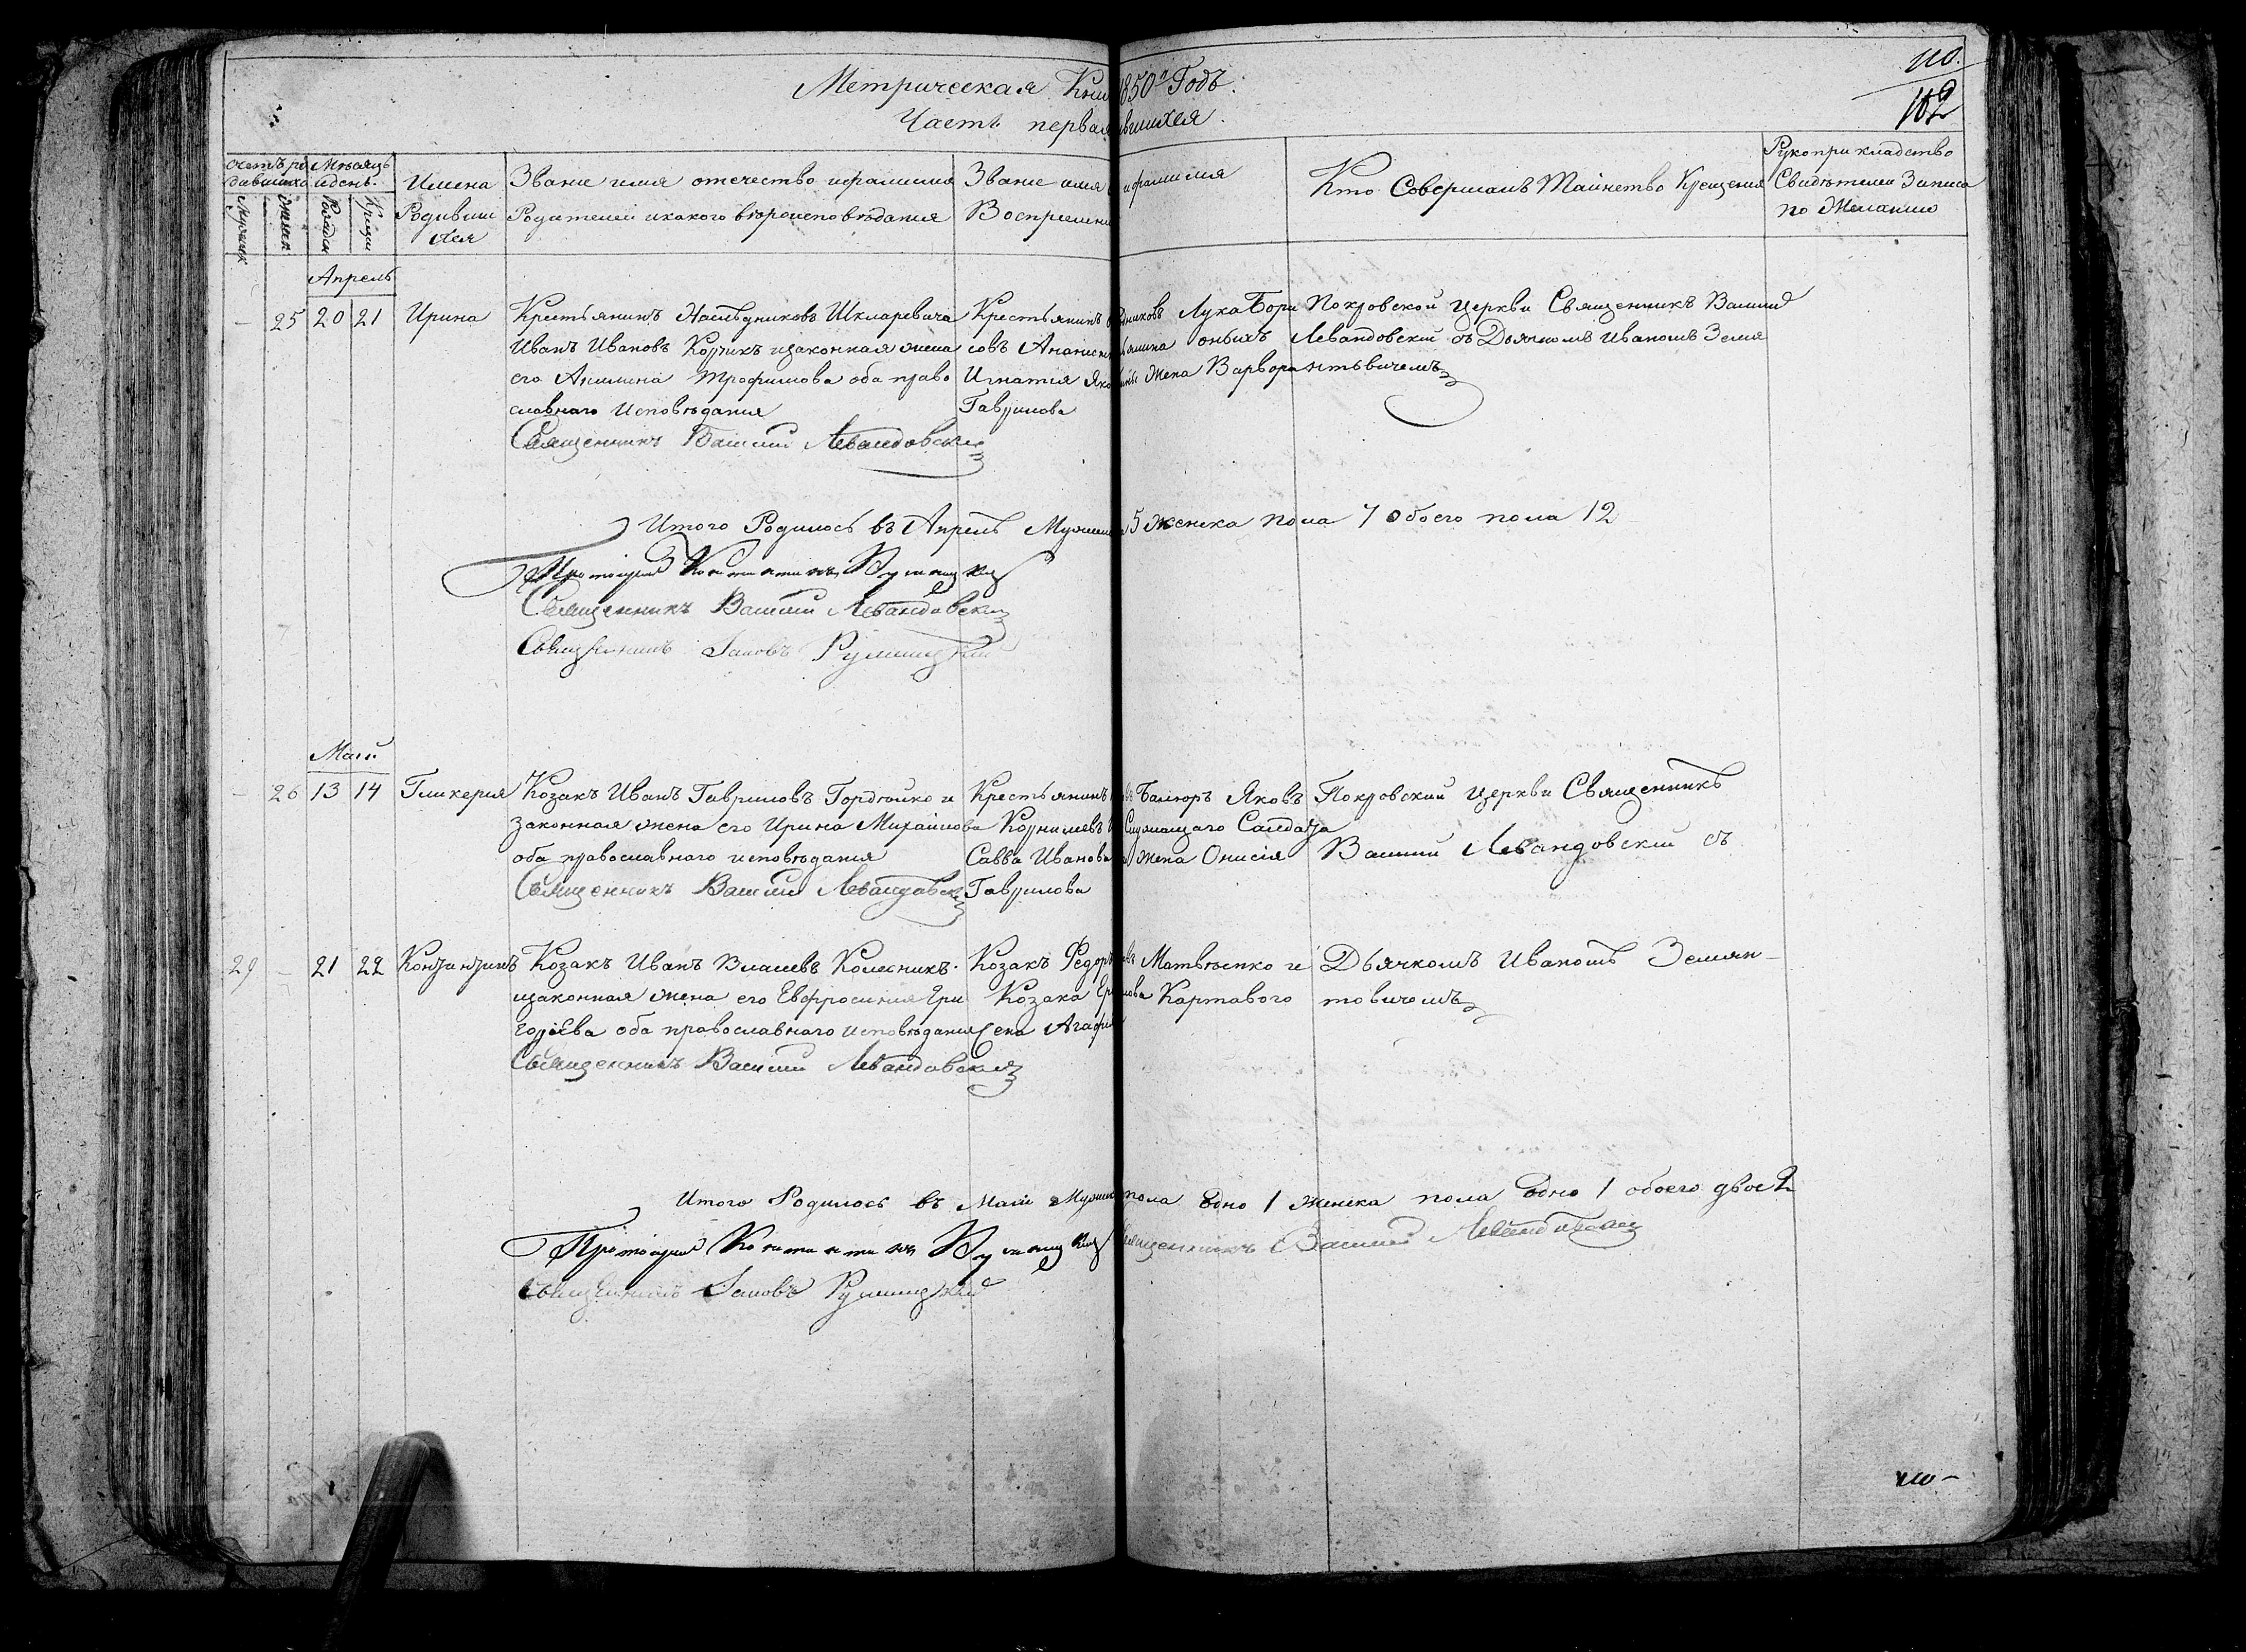 110.
182
Метрическая Кни 1850го Годъ.
Часть первая вшихся.
счетъ ро
дившихся
Мѣсяцъ
и день.
Мужеск
Женск
Рожден
Крещен
Имена
Родивши
хся
Званіе имя отечество и фамилія
Родителей и какого вѣроисповѣданія
Званіе имя и фамилія
Воспріемни
Кто Совершалъ Таинство Крещенія
Рукоприкладство
Свидѣтелей Записа
по Желанію
Апрель
– 25 20 21 Ирина
Крестьянинъ Наслѣдниковъ Шкларевича
Иванъ Ивановъ Корчикъ и законная жена
его Акилина Трофимова оба право
славнаго исповѣданія
Священникъ Василій Левандовскій
Крестьянинъ никовъ Лука Бори
совъ оныхъ
Игнатія Яко жена Варвора
Гаврилова
Покровской Церкви Священникъ Василій
Левандовскій съ Дьячкомъ Иваномъ Земя
нтовичемъ
Итого Родилось въ Апрелѣ Мужеск 5 женска пола 7 обоего пола 12
Протоіерей Константинъ
Священникъ Василій Левандовскій
Священникъ Іаковъ Румницкій
Май
– 26 13 14 Гликерія
Козакъ Иванъ Гавриловъ Гордѣйко и
законная жена его Ирина Михайлова
оба православнаго исповѣданія
Священникъ Василій Левандовскій
Крестьянинъ Яковъ
Корнилевъ Служащаго Салдата
Савва Иванова жена Онисія
Гаврилова
Покровской Церкви Священникъ
Василій Левандовскій съ
29 – 21 22 Константинъ
Козакъ Иванъ Власіевъ Колесникъ
и законная жена его Евфросинія Гри
горіева оба православнаго исповѣданія
Священникъ Василій Левандовскій
Козакъ Федоръ Матвѣенко и
Козака Картавого
жена Агафія
Дьячкомъ Иваномъ Земян–
товичемъ
Итого Родилось въ Маѣ Мужеск пола Одно 1 женска пола Одно 1 обоего двое 2
Протоіерей Константинъ
Священникъ Василій Левандовскій
Священникъ Іаковъ Румницкій
110–